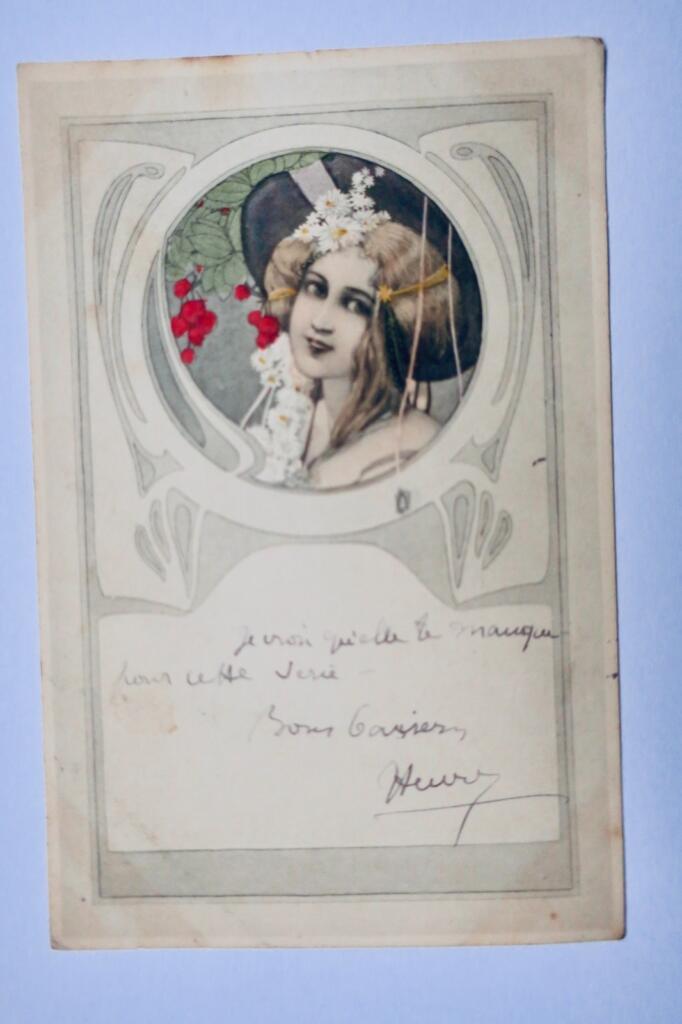 Je crois qu'elle te manque
pour cette Serie -
Bons baisers,
Henry